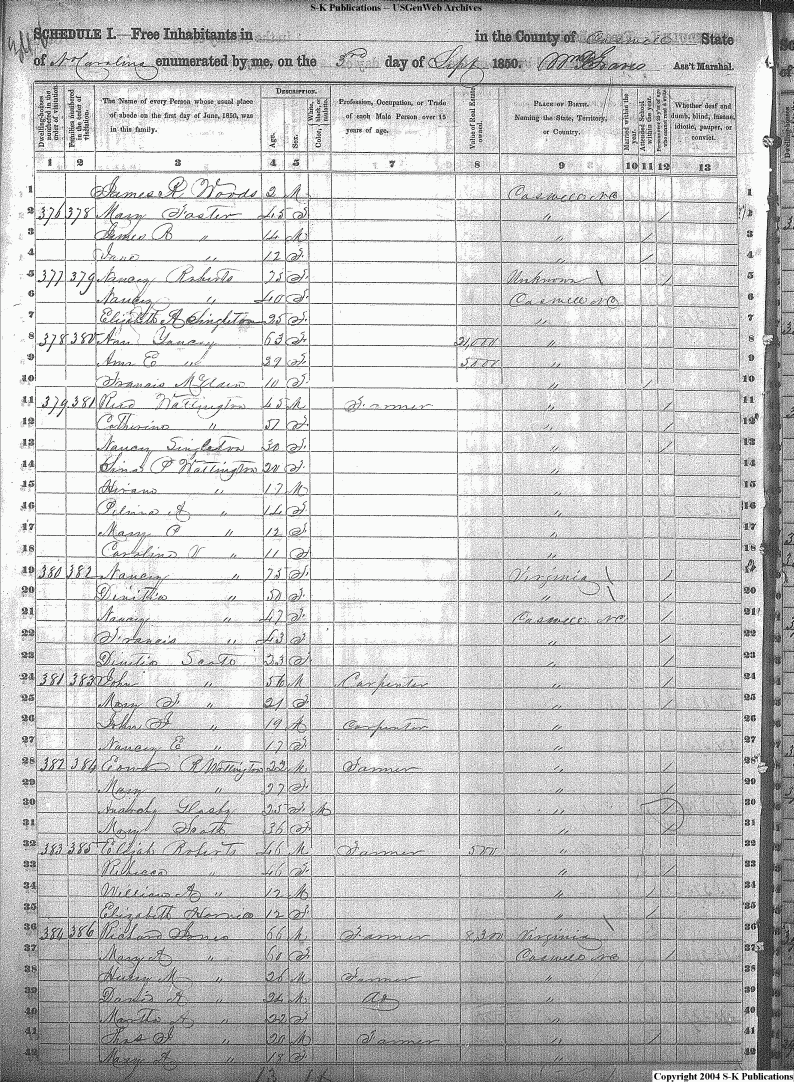 S-K Publications -- USGenWeb Archives
SCHEDULE I.—Free Inhabitants in in the County of Caswell State
of N. Carolina enumerated by me, on the 3rd day of Sept 1850. Wm Graves Ass't Marshal.
Dwelling-houses numbered in the order of visitation.
Families numbered in the order of visitation.
The Name of every Person whose usual place of abode on the first day of June, 1850, was in this family.
DESCRIPTION.
Age.
Sex.
White, Color, black, or mulatto.
Profession, Occupation, or Trade of each Male Person over 15 years of age.
Value of Real Estate owned.
PLACE OF BIRTH. Naming the State, Territory, or Country.
Married within the year.
Attended School within the year.
Whether deaf and dumb, blind, insane, idiotic, pauper, or convict.
1 2 3 4 5 6 7 8 9 10 11 12 13
1 James R Woods 2 M Caswell NC 1
2 376 378 Mary Foster 45 F " / 2
3 James R " 14 M " / 3
4 Jane " 12 F " / 4
5 377 379 Nancy Roberts 75 F Unknown \ / 5
6 Nancy " 40 F Caswell NC 6
7 Elizabeth A Singleton 25 F " 7
8 378 380 Ann Yancey 63 F 21,000 " 8
9 Ann E " 29 F 5000 " 9
10 Francis McClain 10 F " / 10
11 379 381 Watlington 45 M Farmer " / 11
12 Catherine " 51 F " / 12
13 Nancy Singleton 30 F " / 13
14 P Watlington 20 F " 14
15 Hiram " 17 M " 15
16 A " 14 F " 16
17 Mary C " 12 F " 17
18 Caroline V " 11 F " 18
19 380 382 Nancy " 75 F Virginia \ / 19
20 " 50 F " \ / 20
21 Nancy " 47 F Caswell NC / 21
22 Francis " 43 F " / 22
23 Scott 23 F " / 23
24 381 383 John " 56 M Carpenter " / 24
25 Mary F " 21 F " / 25
26 John F " 19 M Carpenter " 26
27 Nancy E " 17 F " 27
28 382 384 Edward R Watlington 22 M Farmer " 28
29 Mary " 27 F " / 29
30 25 F M " / 30
31 Mary Scott 36 F " / 31
32 383 385 Elijah Roberts 46 M Farmer 500 " 32
33 Rebecca " 46 F " / 33
34 William A " 12 M " / 34
35 Elizabeth 12 F " / 35
36 384 386 Richard Jones 66 M Farmer 8,300 Virginia \ 36
37 Mary A " 60 F Caswell NC / 37
38 Henry M " 26 M Farmer " 38
39 David A " 24 M do " 39
40 Martha A " 22 F " 40
41 Thos J " 20 M Farmer " / 41
42 Mary A " 18 F " 42
Copyright 2004 S-K Publications